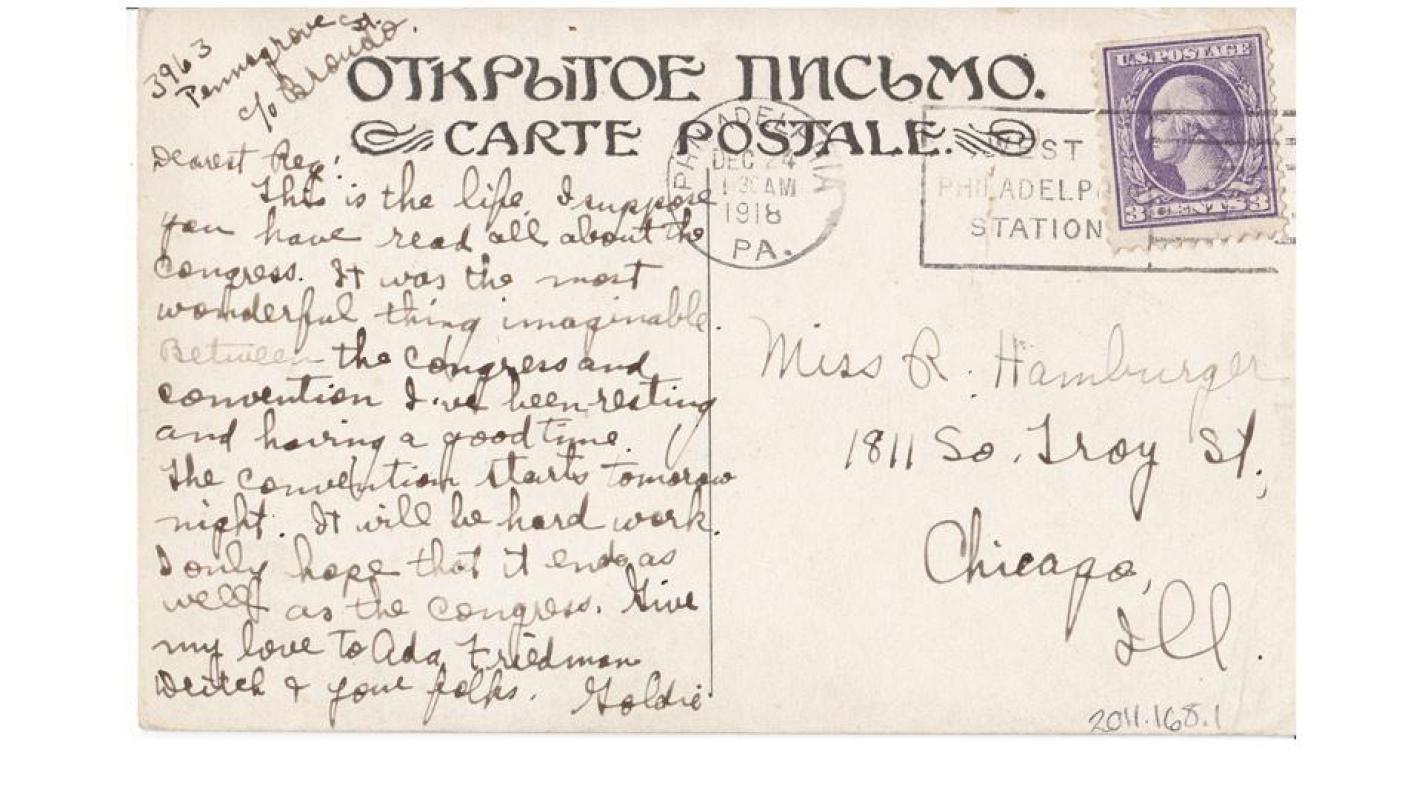 3963
Pennsgrove St.
c/o Broudo.
ОТКРЫТОЕ ПИСЬМО.
CARTE POSTALE.
Dearest Reg:
This is the life. I suppose
you have read all about the
Congress. It was the most
wonderful thing imaginable.
Between the congress and
convention I've been resting
and having a good time.
The convention starts tomorow
night. It will be hard work.
I only hope that it ends as
well as the congress. Give
my love to Ada, Friedman
& your folks. Goldie
PHILADELPHIA
DEC 24
1 30 AM
1918
PA.
WEST
PHILADELP
STATION
U.S. POSTAGE
3 CENTS 3
Miss R. Hamburger
1811 So. Troy St.,
Chicago,
Ill.
2011.168.1